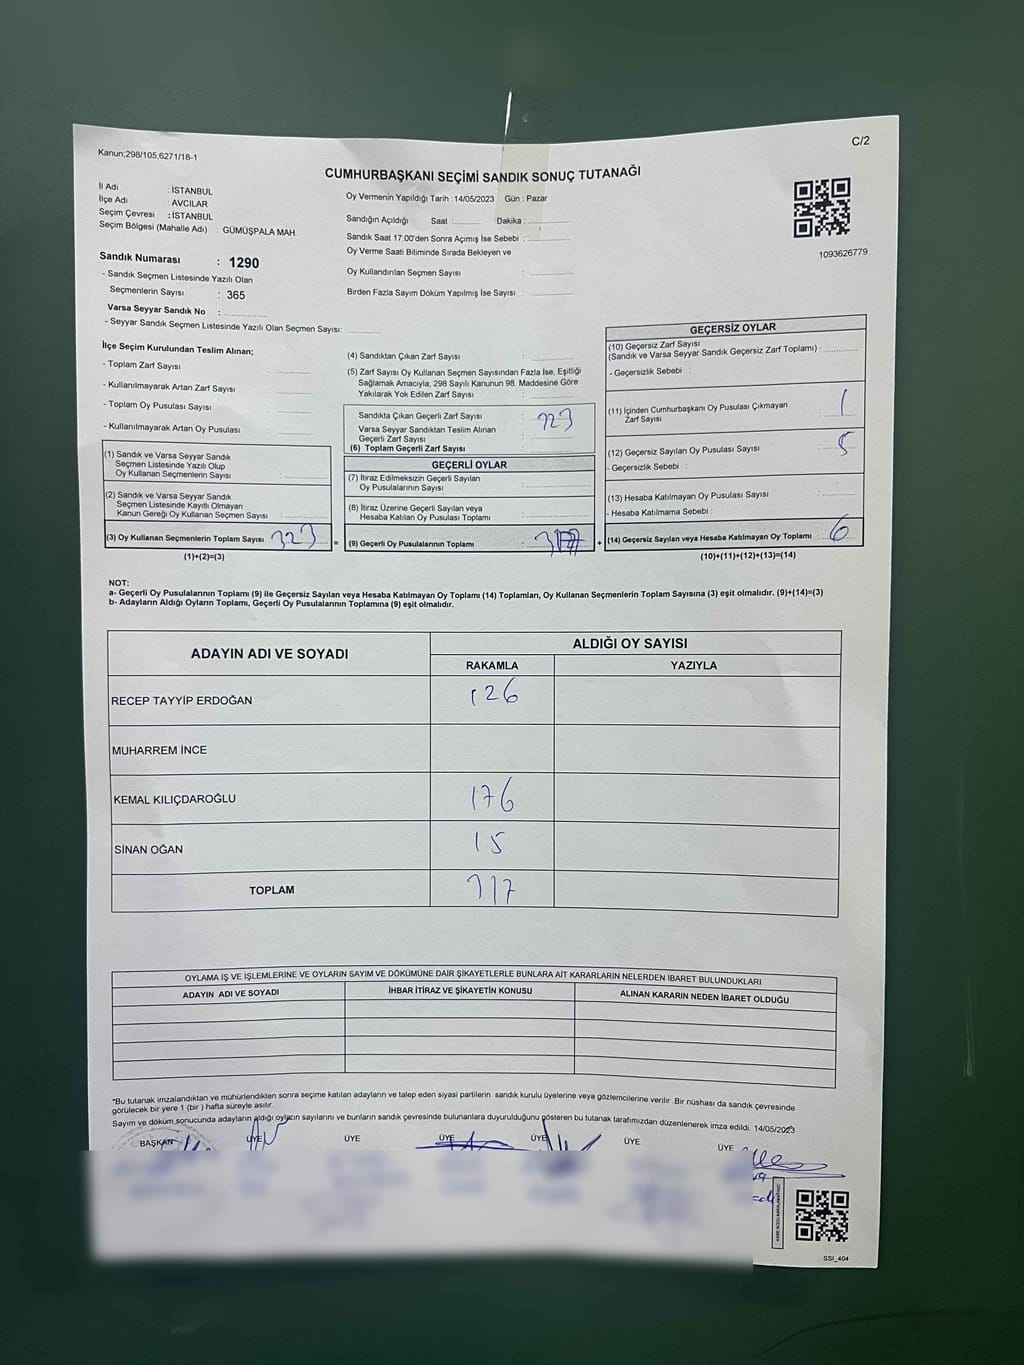 Kanun;298/105;6271/18-1
C/2
CUMHURBAŞKANI SEÇİMİ SANDIK SONUÇ TUTANAĞI
İl Adı : İSTANBUL
İlçe Adı : AVCILAR
Seçim Çevresi : İSTANBUL
Seçim Bölgesi (Mahalle Adı) : GÜMÜŞPALA MAH.
Oy Vermenin Yapıldığı Tarih : 14/05/2023 Gün : Pazar
Sandığın Açıldığı Saat : Dakika :
Sandık Saat 17:00'den Sonra Açımış İse Sebebi :
Oy Verme Saati Bitiminde Sırada Bekleyen ve
Oy Kullandırılan Seçmen Sayısı :
Birden Fazla Sayım Döküm Yapılmış İse Sayısı :
1093626779
Sandık Numarası : 1290
- Sandık Seçmen Listesinde Yazılı Olan
Seçmenlerin Sayısı : 365
Varsa Seyyar Sandık No :
- Seyyar Sandık Seçmen Listesinde Yazılı Olan Seçmen Sayısı:
İlçe Seçim Kurulundan Teslim Alınan;
- Toplam Zarf Sayısı :
- Kullanılmayarak Artan Zarf Sayısı :
- Toplam Oy Pusulası Sayısı :
- Kullanılmayarak Artan Oy Pusulası :
(1) Sandık ve Varsa Seyyar Sandık
Seçmen Listesinde Yazılı Olup
Oy Kullanan Seçmenlerin Sayısı :
(2) Sandık ve Varsa Seyyar Sandık
Seçmen Listesinde Kayıtlı Olmayan
Kanun Gereği Oy Kullanan Seçmen Sayısı :
(3) Oy Kullanan Seçmenlerin Toplam Sayısı : 323
(1)+(2)=(3)
(4) Sandıktan Çıkan Zarf Sayısı :
(5) Zarf Sayısı Oy Kullanan Seçmen Sayısından Fazla İse, Eşitliği
Sağlamak Amacıyla, 298 Sayılı Kanunun 98. Maddesine Göre
Yakılarak Yok Edilen Zarf Sayısı :
Sandıkta Çıkan Geçerli Zarf Sayısı : 323
Varsa Seyyar Sandıktan Teslim Alınan
Geçerli Zarf Sayısı :
(6) Toplam Geçerli Zarf Sayısı :
GEÇERLİ OYLAR
(7) İtiraz Edilmeksizin Geçerli Sayılan
Oy Pusulalarının Sayısı :
(8) İtiraz Üzerine Geçerli Sayılan veya
Hesaba Katılan Oy Pusulası Toplamı :
= (9) Geçerli Oy Pusulalarının Toplamı : 317
GEÇERSİZ OYLAR
(10) Geçersiz Zarf Sayısı
(Sandık ve Varsa Seyyar Sandık Geçersiz Zarf Toplamı) :
- Geçersizlik Sebebi :
(11) İçinden Cumhurbaşkanı Oy Pusulası Çıkmayan
Zarf Sayısı : 1
(12) Geçersiz Sayılan Oy Pusulası Sayısı : 5
- Geçersizlik Sebebi :
(13) Hesaba Katılmayan Oy Pusulası Sayısı :
- Hesaba Katılmama Sebebi :
+ (14) Geçersiz Sayılan veya Hesaba Katılmayan Oy Toplamı : 6
(10)+(11)+(12)+(13)=(14)
NOT:
a- Geçerli Oy Pusulalarının Toplamı (9) ile Geçersiz Sayılan veya Hesaba Katılmayan Oy Toplamı (14) Toplamları, Oy Kullanan Seçmenlerin Toplam Sayısına (3) eşit olmalıdır. (9)+(14)=(3)
b- Adayların Aldığı Oyların Toplamı, Geçerli Oy Pusulalarının Toplamına (9) eşit olmalıdır.
ADAYIN ADI VE SOYADI
ALDIĞI OY SAYISI
RAKAMLA YAZIYLA
RECEP TAYYİP ERDOĞAN 126
MUHARREM İNCE
KEMAL KILIÇDAROĞLU 176
SİNAN OĞAN 15
TOPLAM 317
OYLAMA İŞ VE İŞLEMLERİNE VE OYLARIN SAYIM VE DÖKÜMÜNE DAİR ŞİKAYETLERLE BUNLARA AİT KARARLARIN NELERDEN İBARET BULUNDUKLARI
ADAYIN ADI VE SOYADI İHBAR İTİRAZ VE ŞİKAYETİN KONUSU ALINAN KARARIN NEDEN İBARET OLDUĞU
*Bu tutanak imzalandıktan ve mühürlendikten sonra seçime katılan adayların ve talep eden siyasi partilerin sandık kurulu üyelerine veya gözlemcilerine verilir. Bir nüshası da sandık çevresinde
görülecek bir yere 1 (bir ) hafta süreyle asılır.
Sayım ve döküm sonucunda adayların aldığı oyların sayılarını ve bunların sandık çevresinde bulunanlara duyurulduğunu gösteren bu tutanak tarafımızdan düzenlenerek imza edildi. 14/05/2023
BAŞKAN ÜYE ÜYE ÜYE ÜYE ÜYE ÜYE
SSI_404